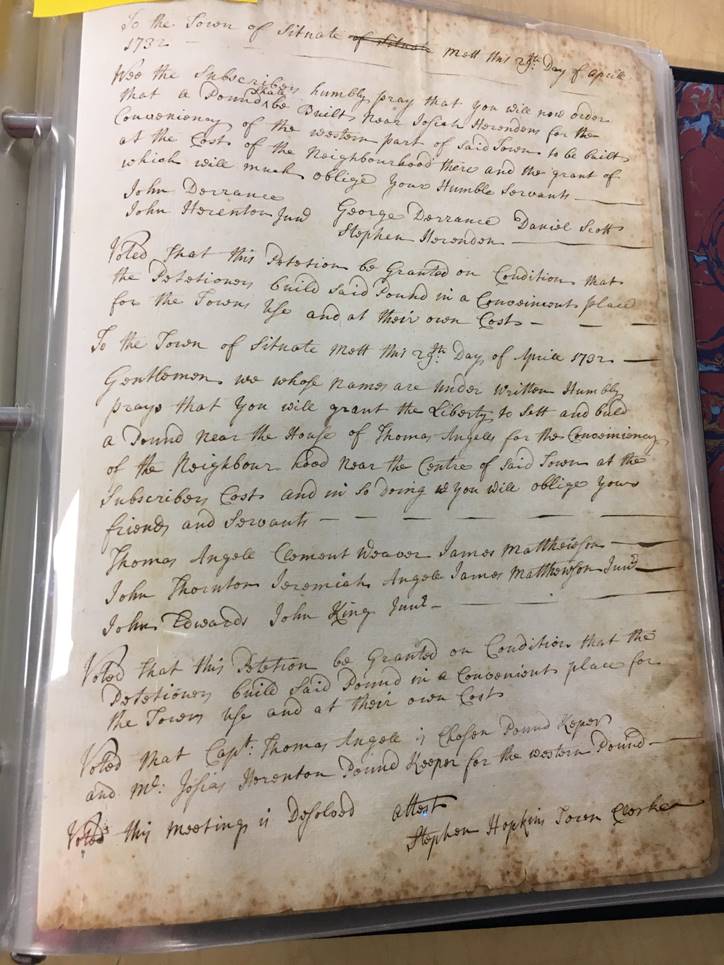 To the Town of Situate of Situate mett this 29th Day of aprill
1732
Wee the Subscribers humbly pray that you will now order
that a Pound Shall be Built near Josiah Herendens for the
Conveniency of the western part of said Town to be built
at the Cost of the Neighbourhood there and the grant of
which will much oblige your Humble Servants
John Dorrance George Dorrance Daniel Scott
John Herenton Junr Stephen Herenden
Voted That this Petetion be Granted on Condition that
the Petetioners build said Pound in a Conveinient place
for the Towns Use and at their own Cost
To the Town of Situate mett this 29th Day of Aprill 1732
Gentlemen we whose names are under written Humbly
prays that you will grant the Liberty to Sett and build
a Pound near the House of Thomas Angells for the Conveniency
of the Neighbour hood near the Centre of said Town at the
Subscribers Cost and in so doing you will oblige your
friends and Servants
Thomas Angell Clement Weaver James Matthewson
John Thornton Jeremiah Angell James Matthewson Junr
John Edwards John King Junr
Voted that this Petetion be Granted on Condition that the
Petetioners build said Pound in a Convenient place for
the Towns Use and at their own Cost
Voted that Capt: Thomas Angell is Chosen Pound Keper
and Mr: Josias Herenton Pound Keeper for the western Pound
Voted this meeting is Desolved attest
Stephen Hopkins Town Clerke